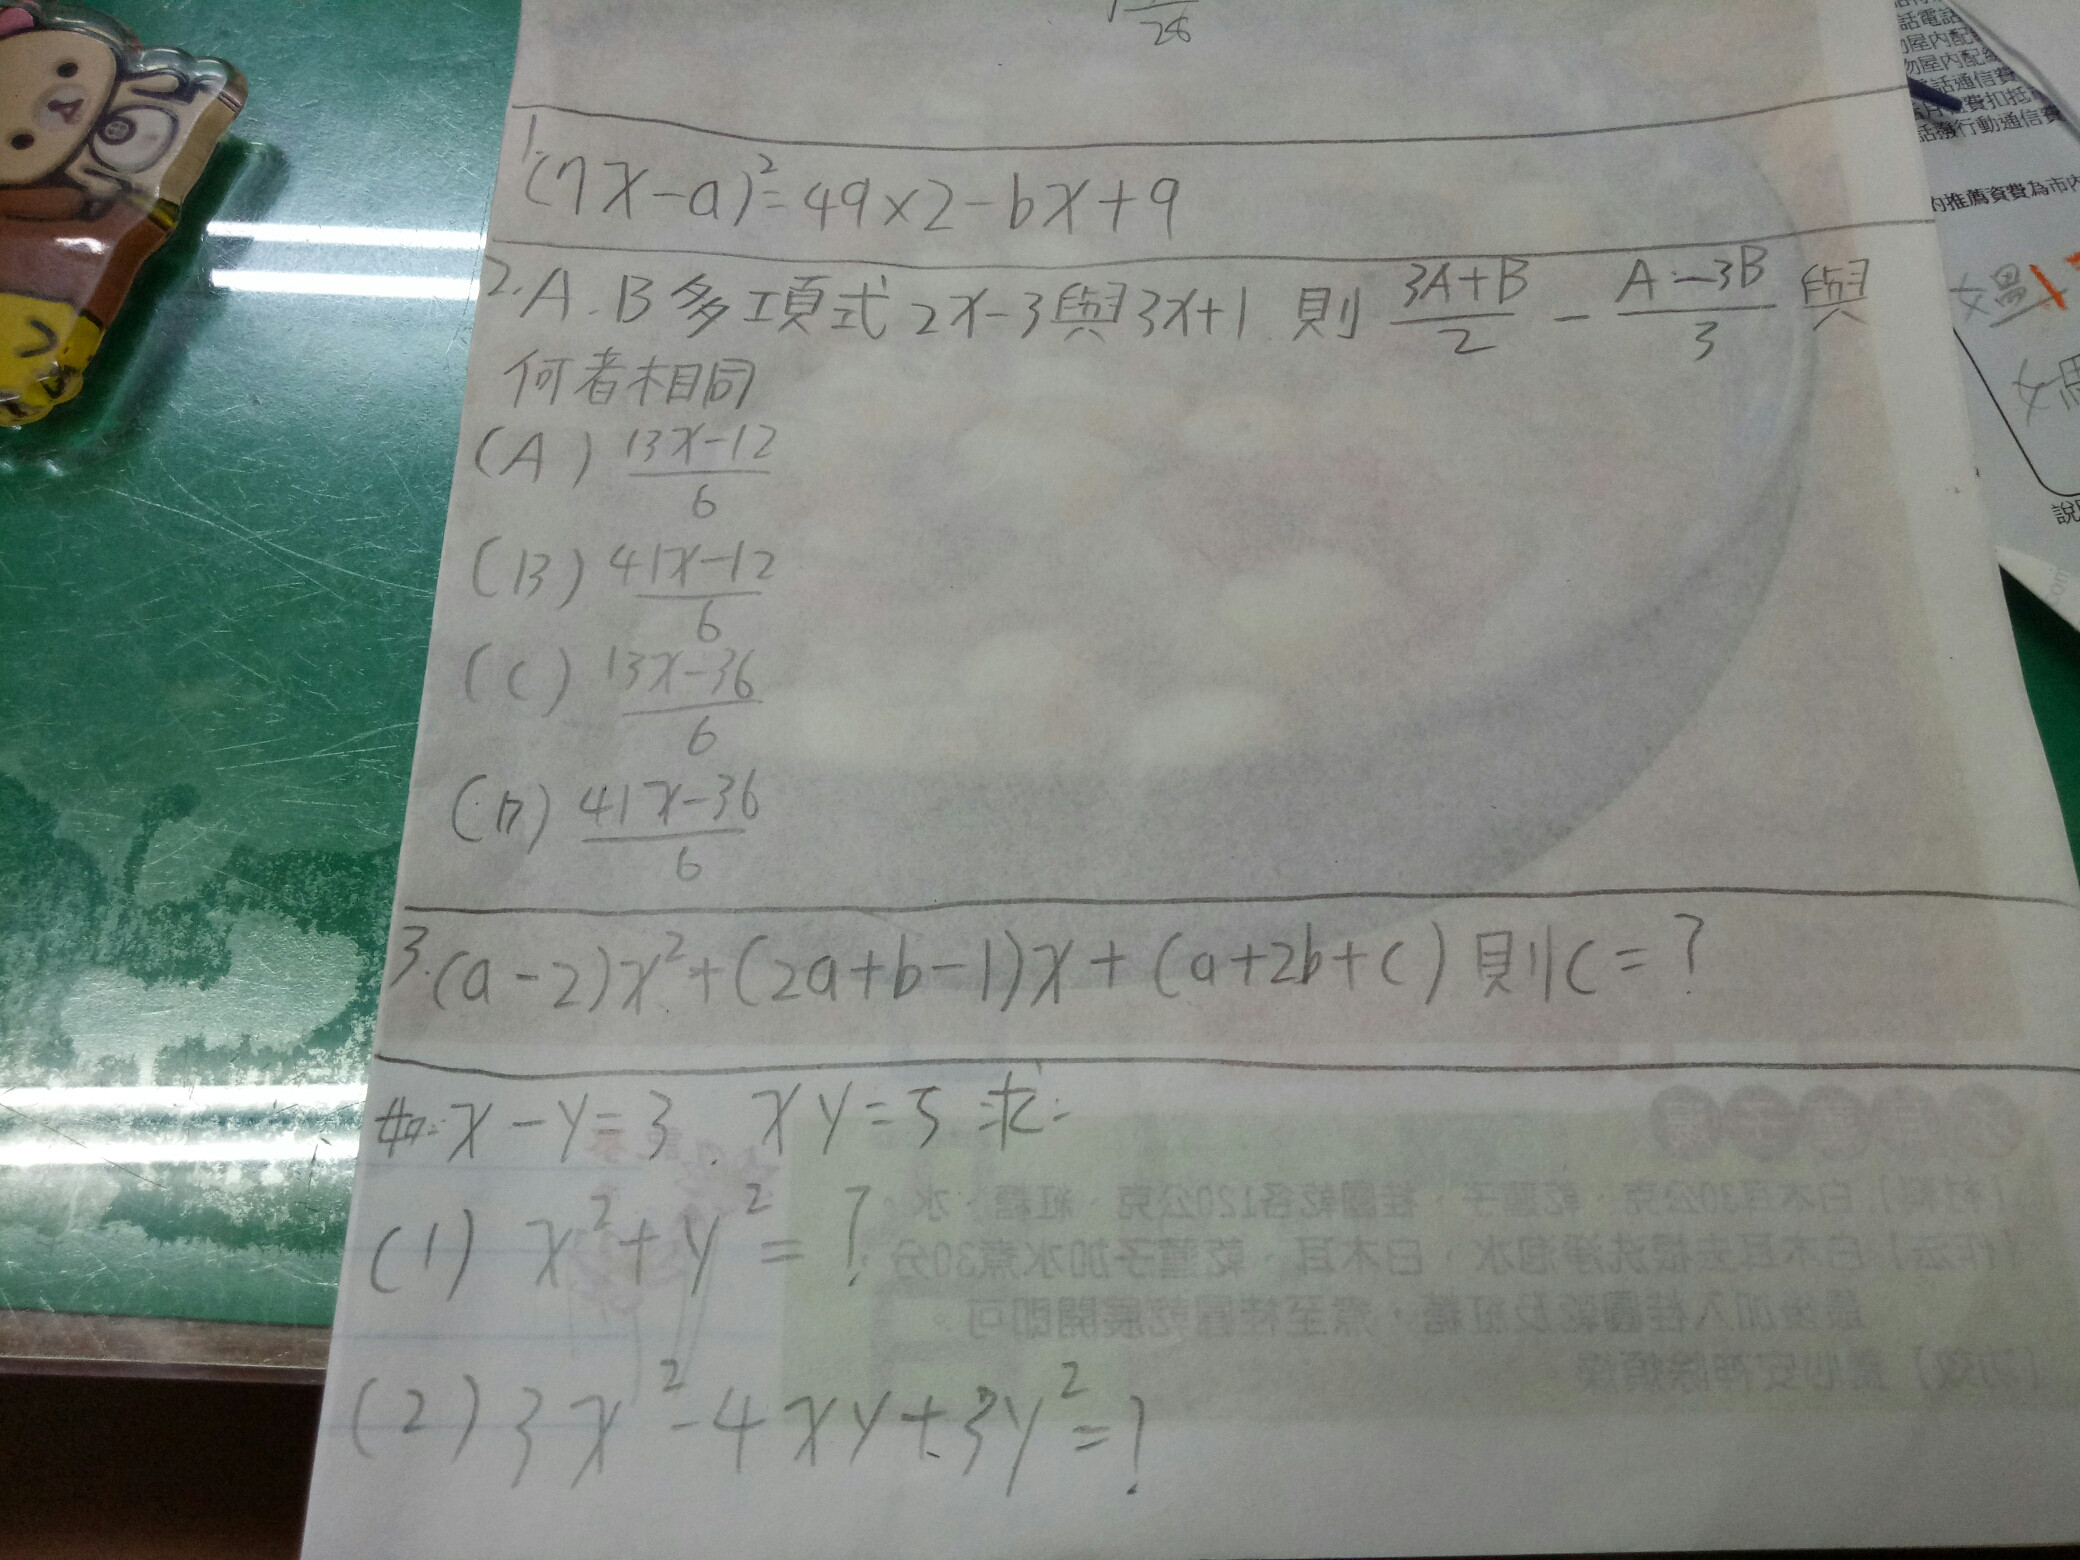 26
1. (7x-a)²=49×2-bx+9
2. A.B多項式2x-3與3x+1.則 3A+B/2 - A-3B/3 與
何者相同
(A) 13x-12/6
(B) 41x-12/6
(C) 13x-36/6
(D) 41x-36/6
3.(a-2)x²+(2a+b-1)x+(a+2b+c)則c=?
x-y=3. xy=5求:
(1) x²+y²=?
(2) 3x²-4xy+3y²=?
話電話
屋內配
物屋內配線
話通信費
費扣抵
行動通信費
內推薦資費為市內
說
.com
(材料) 白木耳30公克、乾蓮子、桂圓乾各120公克、紅糖、水。
(作法) 白木耳去根洗淨泡水,白木耳、乾蓮子加水煮30分
最後加入桂圓乾及紅糖,煮至桂圓乾展開即可。
(功效) 養心安神除煩燥